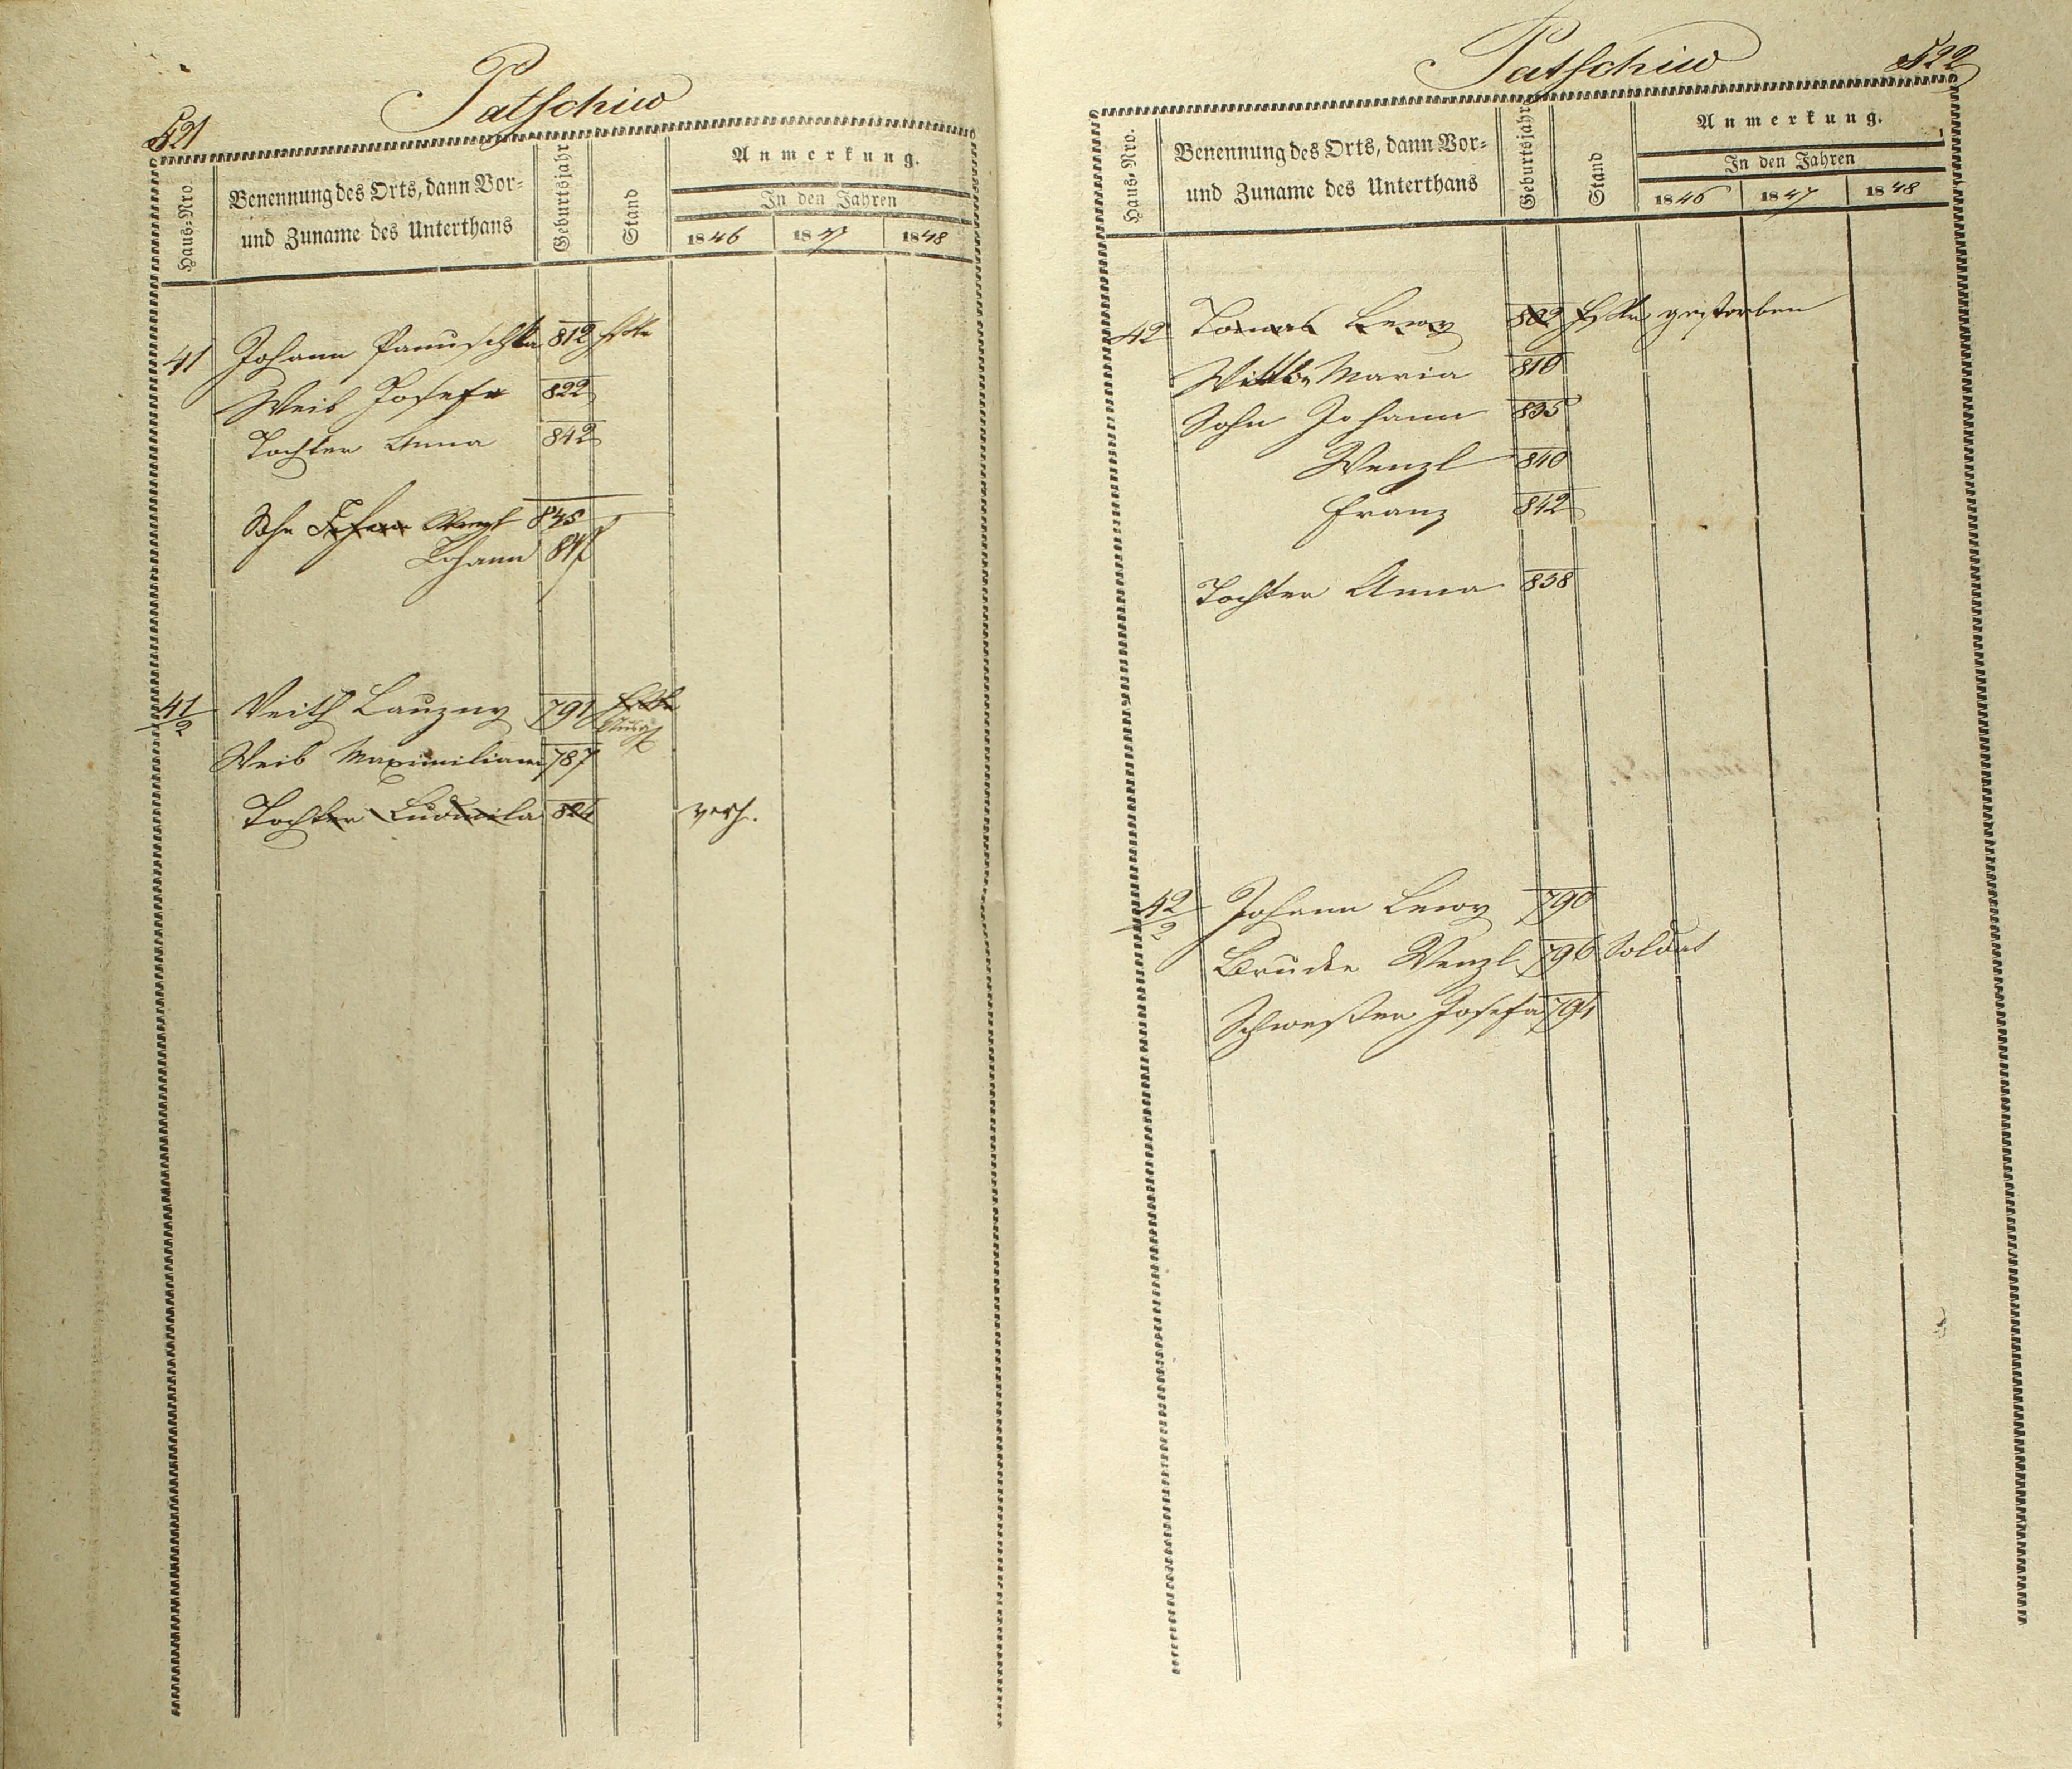 521
Patschiw
Haus-Nro.
Benennung des Orts, dann Vor-
und Zuname des Unterthans
Geburtsjahr
Stand
Anmerkung.
In den Jahren
1846 1847 1848
41 Johann Panuschka 812
Weib Josefa 822
Tochter Anna 842
Sohn Johann Wenzl 845
Johann 847
41/2 Veith Lauzny 791
Weib Maximiliana 787
Tochter Ludmila 824 verh.
Patschiw
522
Haus-Nro.
Benennung des Orts, dann Vor-
und Zuname des Unterthans
Geburtsjahr
Stand
Anmerkung.
In den Jahren
1846 1847 1848
42 Tomas Lewy 802 gestorben
Wittib Maria 810
Sohn Johann 835
Wenzl 840
Franz 842
Tochter Anna 838
42/2 Johann Lewy 790
Bruder Wenzl 796 Soldat
Schwester Josefa 794